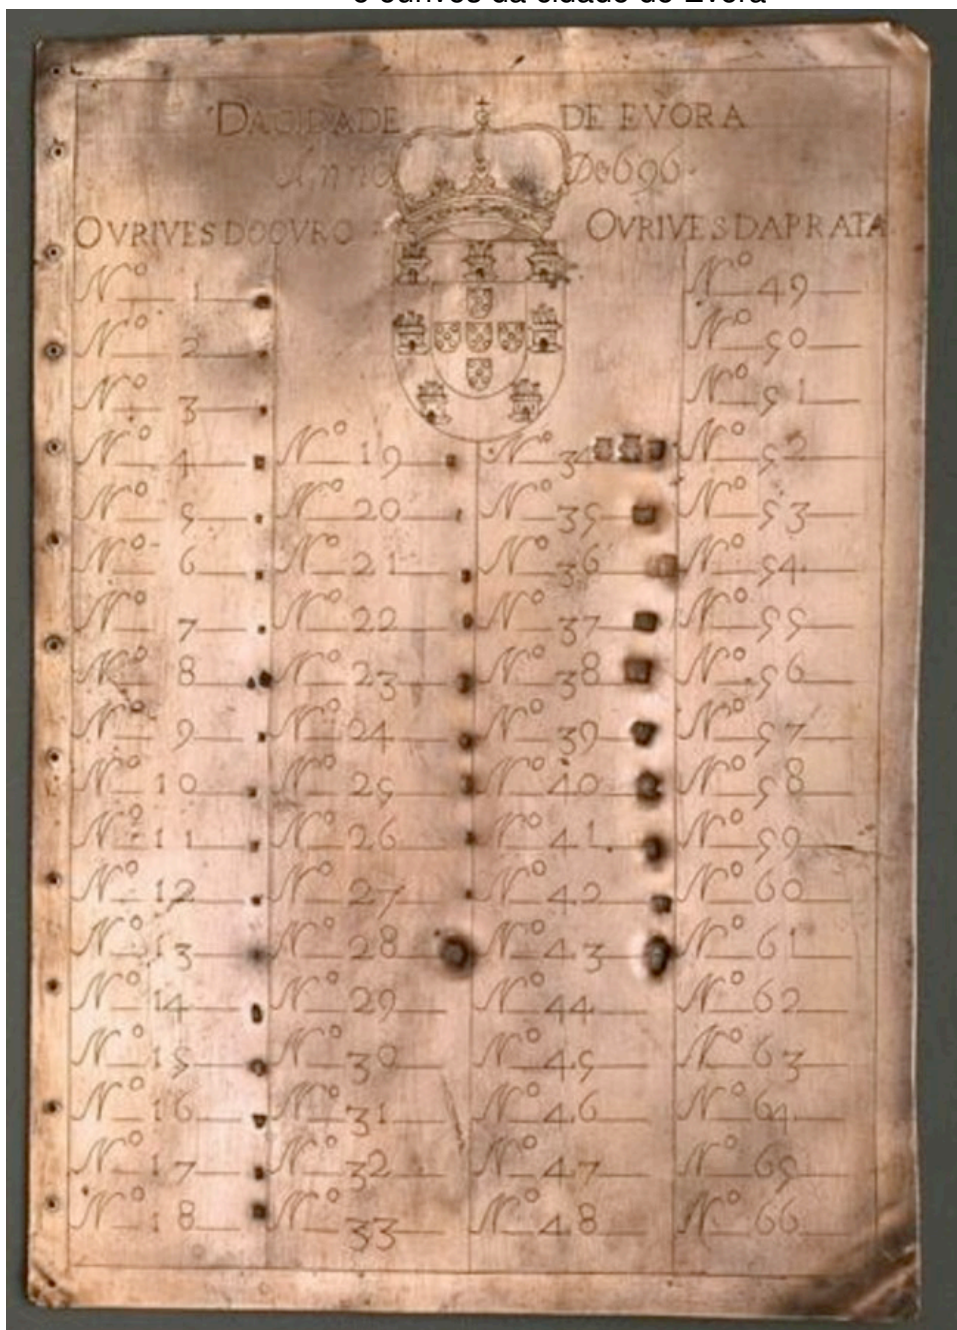 e ourives da cidade de Évora
DACIDADE DE EVORA
Anno De696
OVRIVES DOOVRO OVRIVES DAPRATA
Nº 1
Nº 2
Nº 3
Nº 4
Nº 5
Nº 6
Nº 7
Nº 8
Nº 9
Nº 10
Nº 11
Nº 12
Nº 13
Nº 14
Nº 15
Nº 16
Nº 17
Nº 18
Nº 19
Nº 20
Nº 21
Nº 22
Nº 23
Nº 24
Nº 25
Nº 26
Nº 27
Nº 28
Nº 29
Nº 30
Nº 31
Nº 32
Nº 33
Nº 34
Nº 35
Nº 36
Nº 37
Nº 38
Nº 39
Nº 40
Nº 41
Nº 42
Nº 43
Nº 44
Nº 45
Nº 46
Nº 47
Nº 48
Nº 49
Nº 50
Nº 51
Nº 52
Nº 53
Nº 54
Nº 55
Nº 56
Nº 57
Nº 58
Nº 59
Nº 60
Nº 61
Nº 62
Nº 63
Nº 64
Nº 65
Nº 66